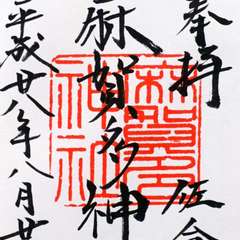 奉拝 佐
麻賀多神
平成廿八年八月廿
麻賀多
神社